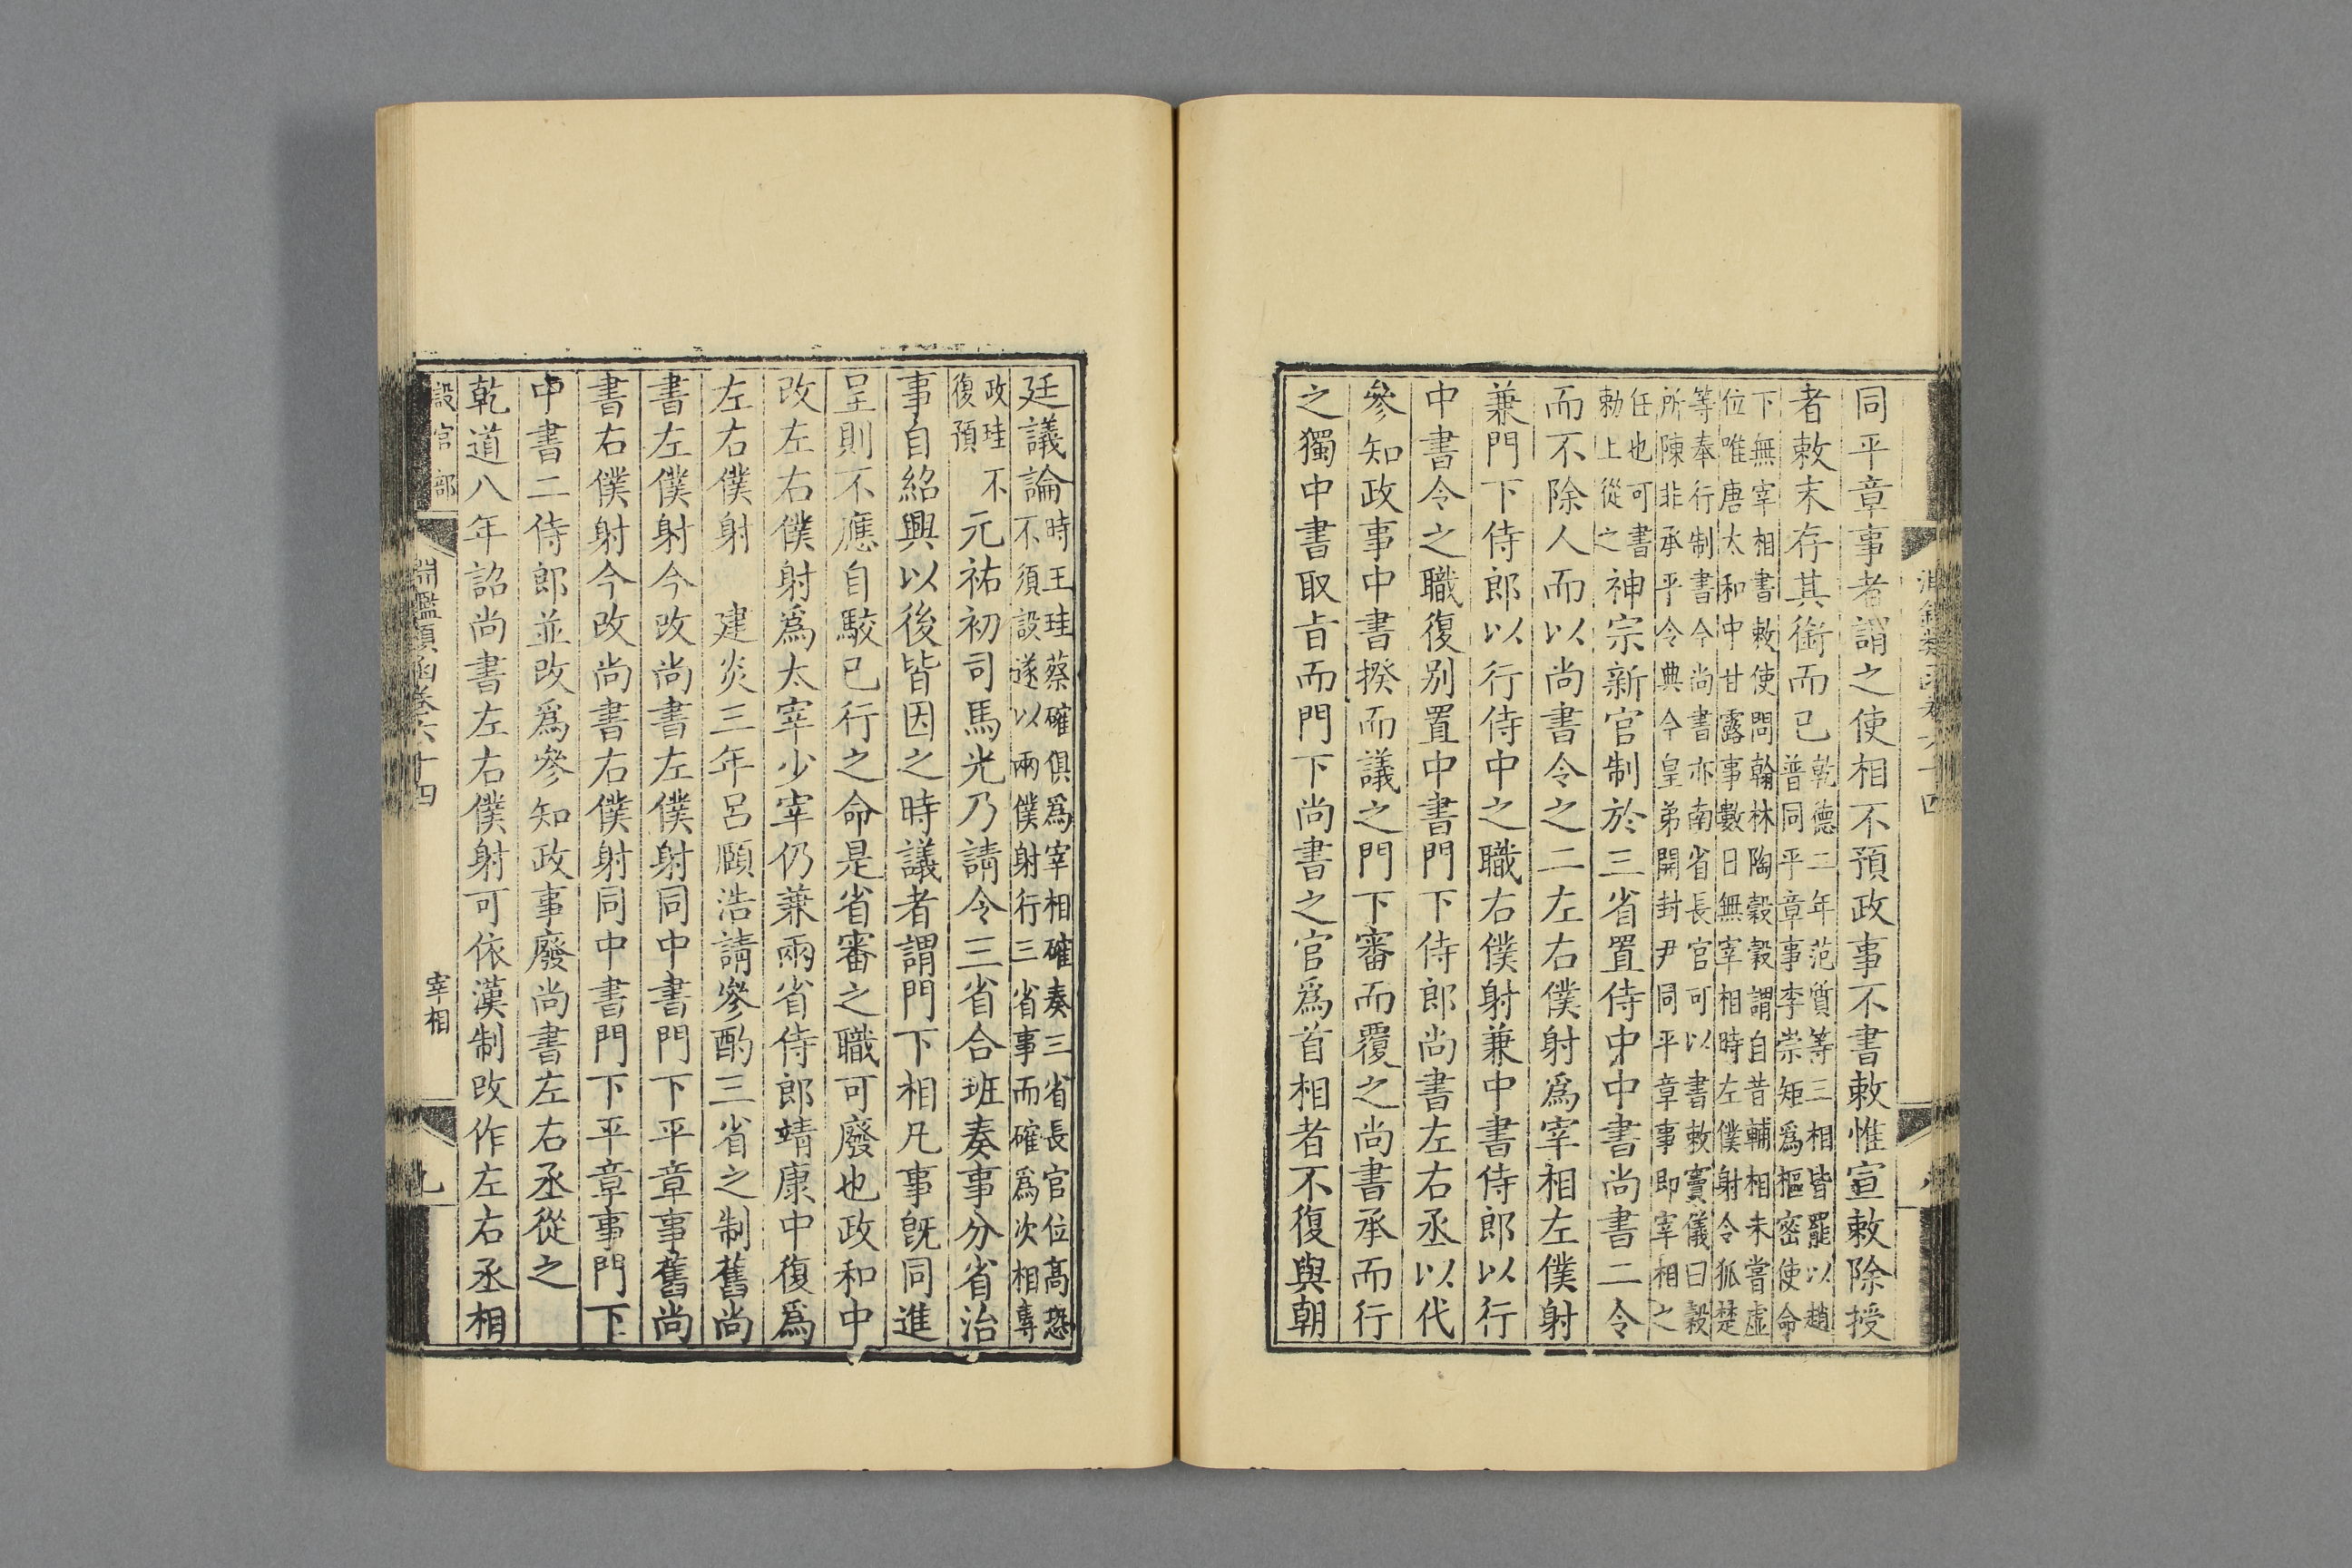 同平章事者謂之使相不預政事不書敕惟宣敕除授
者敕末存其銜而已乾德二年范質等三相皆罷以趙普同平章事李崇矩爲樞密使命
下無宰相書敕使問翰林陶穀穀謂自昔輔相未嘗虛位唯唐太和中甘露事數日無宰相時左僕射令狐楚
等奉行制書今尚書亦南省長官可以書敕竇儀曰穀所陳非承平令典今皇弟開封尹同平章事即宰相之
任也可書勅上從之神宗新官制於三省置侍中中書尚書二令
而不除人而以尚書令之二左右僕射爲宰相左僕射
兼門下侍郎以行侍中之職右僕射兼中書侍郎以行
中書令之職復別置中書門下侍郎尚書左右丞以代
參知政事中書揆而議之門下審而覆之尚書承而行
之獨中書取旨而門下尚書之官爲首相者不復與朝
廷議論時王珪蔡確俱爲宰相確奏三省長官位高恐不須設遂以兩僕射行三省事而確爲次相專
政珪不復預元祐初司馬光乃請令三省合班奏事分省治
事自紹興以後皆因之時議者謂門下相凡事旣同進
呈則不應自駁已行之命是省審之職可廢也政和中
改左右僕射爲太宰少宰仍兼兩省侍郎靖康中復爲
左右僕射 建炎三年呂頤浩請參酌三省之制舊尚
書左僕射今改尚書左僕射同中書門下平章事舊尚
書右僕射今改尚書右僕射同中書門下平章事門下
中書二侍郎並改爲參知政事廢尚書左右丞從之
乾道八年詔尚書左右僕射可依漢制改作左右丞相
設官部
淵鑑類函卷六十四
宰相
九